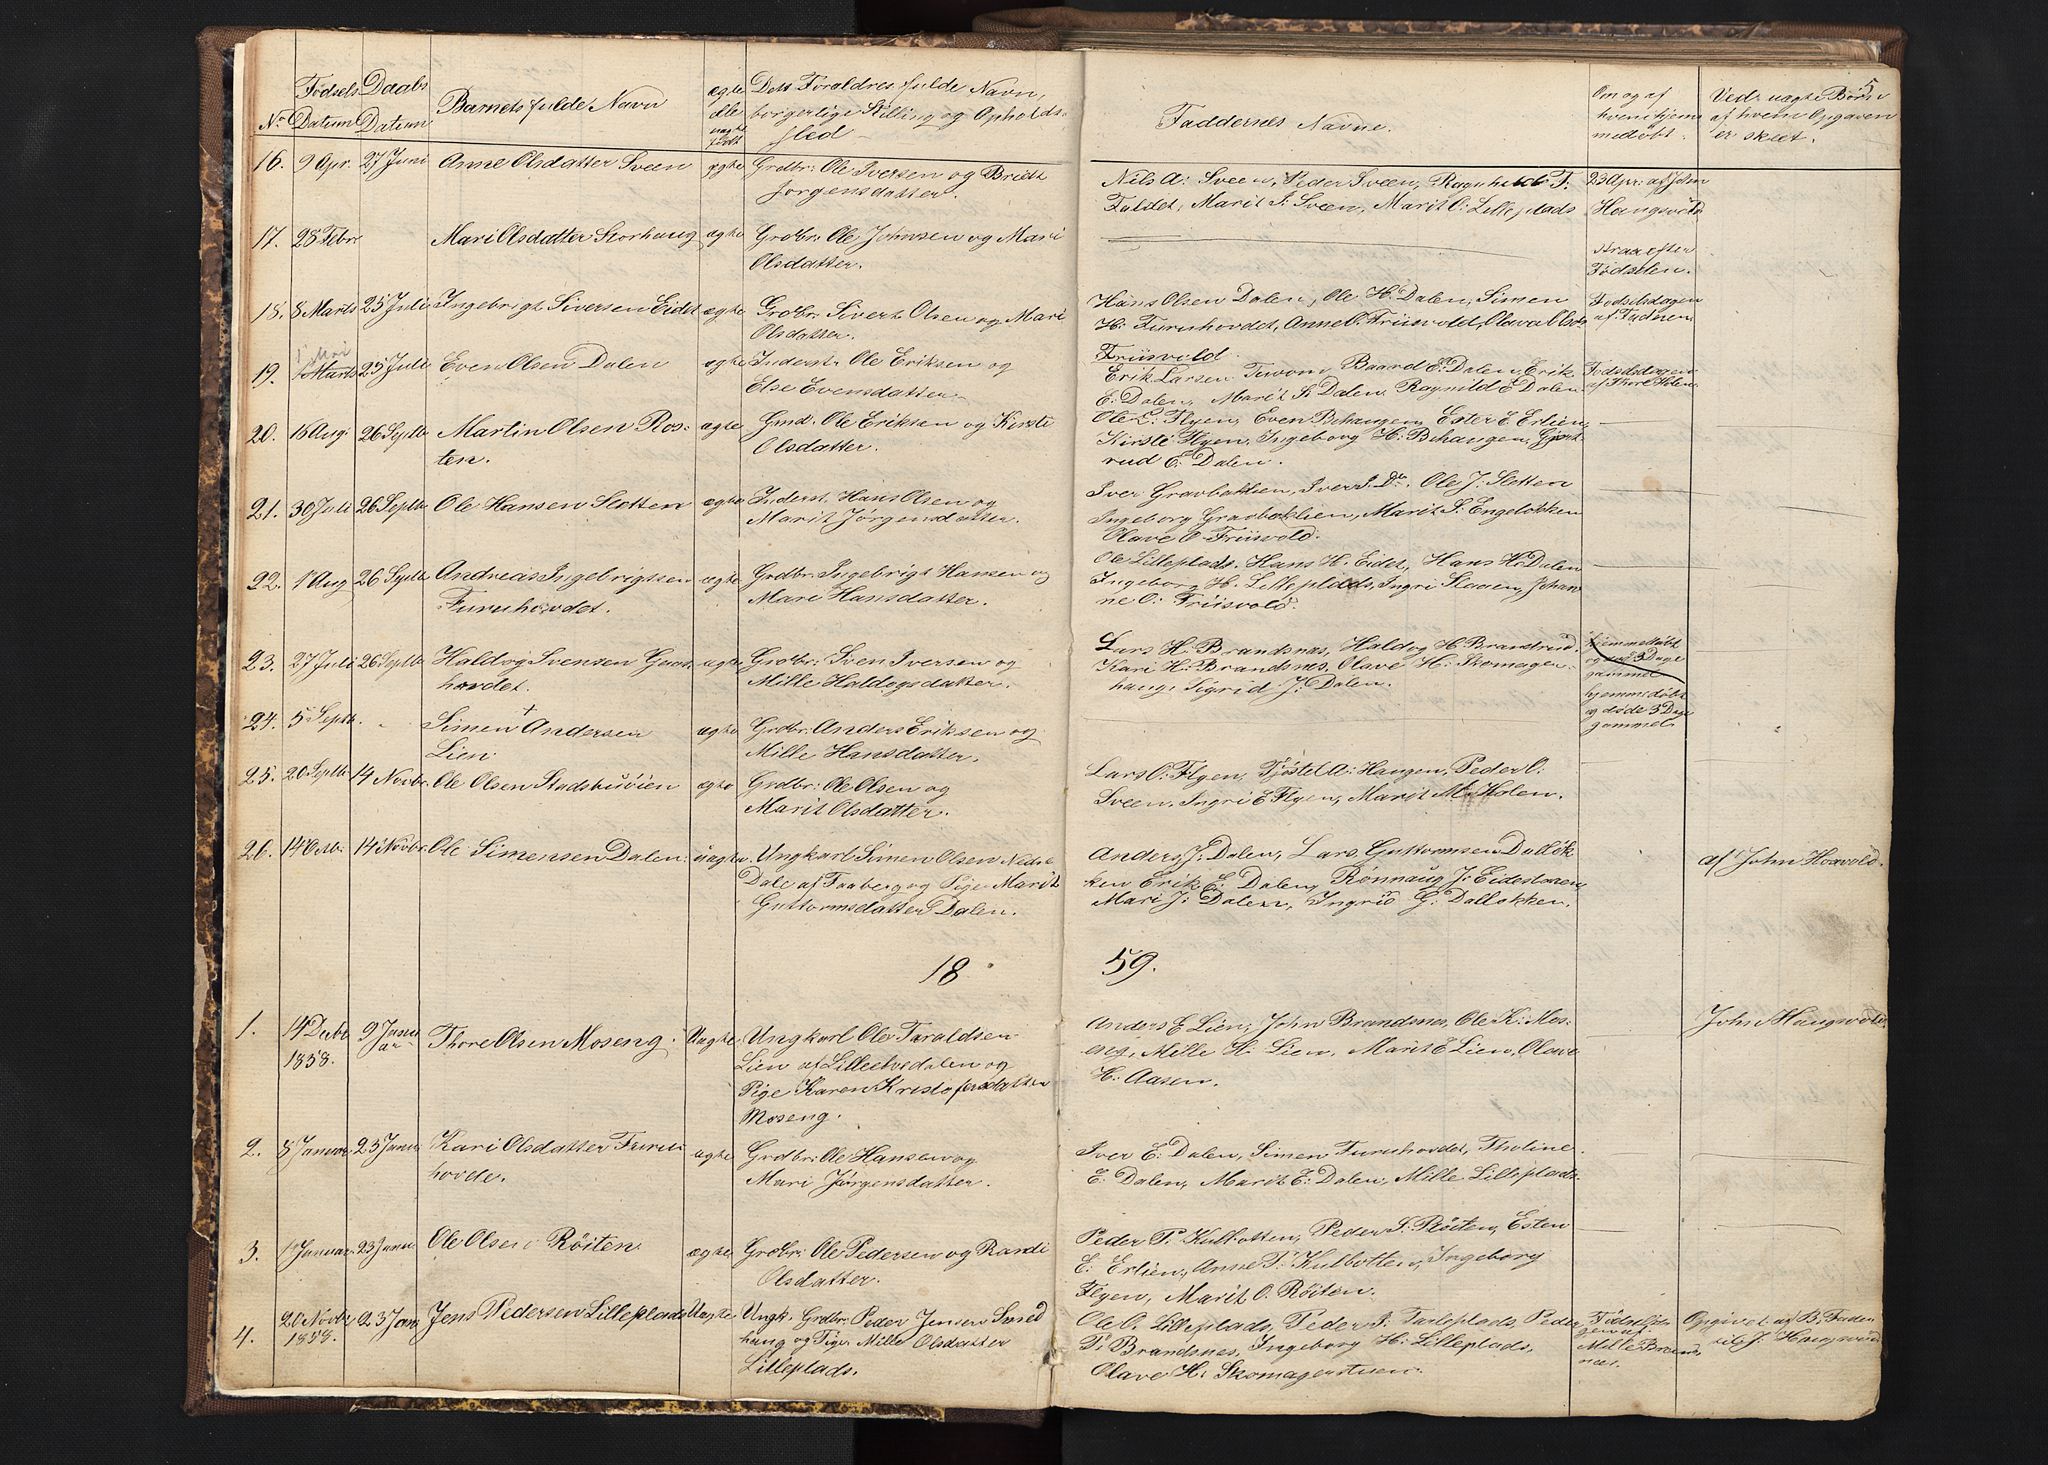 No. Fødsels Datum Daabs Datum Barnets fulde Navn ægte elle uægte født Dets Foraldres fulde Navn,
borgerlige Stilling og Opholds-
sted
Faddernes Navne.
Om og af hvem hjemmedøbt.
Ved uægte Børn af hvem Opgaven er skeet.
5
16. 9 Apr. 27 Juni Anne Olsdatter Sveen ægte Grdbr: Ole Iversen og Briet
Jørgensdatter.
Nils A: Sveen, Peder Sveen, Ragnhild T.
Faldet, Marit I. Sveen, Marit O: Lilleplads
23 Apr: af John
Haugsvold
17. 28 Febr Mari Olsdatter Storhaug ægte Grdbr: Ole Johnsen og Mari
Olsdatter.
strax efter
Fødselen.
18. 8 Marts 25 Juli Ingebrigt Siversen Eidet ægte Grdbr: Sivert Olsen og Mari
Olsdatter.
Hans Olsen Dalen, Ole H. Dalen, Simen
H: Furuhovdet, Anne O. Friisvold, Olava Olsd.
Friisvold.
Fødselsdagen
af Fadren
19. Mai
Marts 25 Juli Even Olsen Dalen ægte Inderst. Ole Eriksen og
Else Evensdatter
Erik Larsen, Baard E: Dalen, Erik
E: Dalen, Marit S. Dalen, Ragnild E Dalen
Fødselsdagen
af Thore Holen.
20. 15 Aug: 26 Septb Martin Olsen Ros-
ten. ægte Gmd. Ole Eriksen og Kirsti
Olsdatter.
Ole L. Flyen, Even Behaugen, Ester E Erlien,
Kirsti Flyen, Ingeborg H: Behaugen, Gjert-
rud E: Dalen.
21. 30 Juli 26 Septb Ole Hansen Sletten ægte Inderst. Hans Olsen og
Marit Jørgensdatter.
Iver Gravbaklien, Iver S. Do. Ole J. Sletten
Ingeborg Gravbaklien, Marit S. Engeløkken
Olave O Friisvold.
22. 1 Aug 26 Septb Andreas Ingebrigtsen
Furuhovdet. ægte Grdbr: Ingebrigt Hansen og
Mari Hansdatter.
Ole Lilleplads, Hans H. Eidet, Hans H: Dalen
Ingeborg H. Lilleplads, Ingri Slaaen, Johan-
ne O: Friisvold.
23. 27 Juli 26 Septb Haldog Svensen Gron-
hovdet. ægte Grdbr: Sven Iversen og
Mille Haldogsdatter.
Lars H: Brandsnes, Haldog H Brandrud
Kari H: Brandsnes, Olave H: Skomager-
haug, Sigrid J: Dalen.
hjemmedøbt
og død 3 Dage
gammel
24. 5 Septb. " Simen + Andersen
Lien ægte Grdbr: Anders Eriksen og
Mille Hansdatter.
hjemmedøbt
og døde 3 Dage
gammel
25. 20 Septb 14 Novbr. Ole Olsen Stadsbuøien ægte Grdbr: Ole Olsen og
Marit Olsdatter.
Lars O: Flyen, Tjøstel A: Haugen, Peder O:
Sveen, Ingri E Flyen, Marit M. Holen.
26. 14 Octb. 14 Novbr Ole Simensen Dalen. uægte Ungkarl Simen Olsen Nedre
Dale af Faaberg og Pige Marit
Guttormsdatter Dalen.
Anders J: Dalen, Lars Guttormsen Dalløk-
ken Erik E Dalen, Rønnaug J: Eidestuen,
Mari J: Dalen, Ingrid G: Dalløkken.
af John Hoavold.
18 59.
1. 14 Decbr
1858. 9 Janu
ar Thore Olsen Moseng. Uægte Ungkarl Ole Taraldsen
Lien af Lilleelvedalen og
Pige Karen Kristofersdatter
Moseng.
Anders E Lien, John Brandsnes, Ole K: Mos-
eng, Mille H. Lien, Marit E Lien, Olave
H: Aasen.
John Haugsvold.
2. 8 Januar 23 Janu Kari Olsdatter Furu-
hovde. ægte Grdbr: Ole Hansen og
Mari Jørgensdatter.
Iver E: Dalen, Simen Furuhovdet, Tholine
E: Dalen, Marit E: Dalen, Mille Lilleplads.
3. 1 Januar 23 Janu Ole Olsen Røiten ægte Grdbr: Ole Pedersen og Randi
Olsdatter.
Peder P. Kulbotten, Peder S. Røiten, Esten
E: Erlien, Anne P: Kulbotten, Ingeborg
Flyen, Marit O. Røiten.
4. 20 Novbr
1858. 23 Jan Jens Pedersen Lilleplads Uægte Ungk. Grdbr: Peder Jensen Smed
haug og Pige Mille Olsdatter
Lilleplads.
Ole O Lilleplads, Peder J: Lilleplads, Peder
P: Brandsnes, Ingeborg H: Lilleplads,
Olave H: Skomagerstuen.
Fødselsda-
gen af
Mille Brand-
nes.
Opgivet af B. Fader
til J. Haugsvold